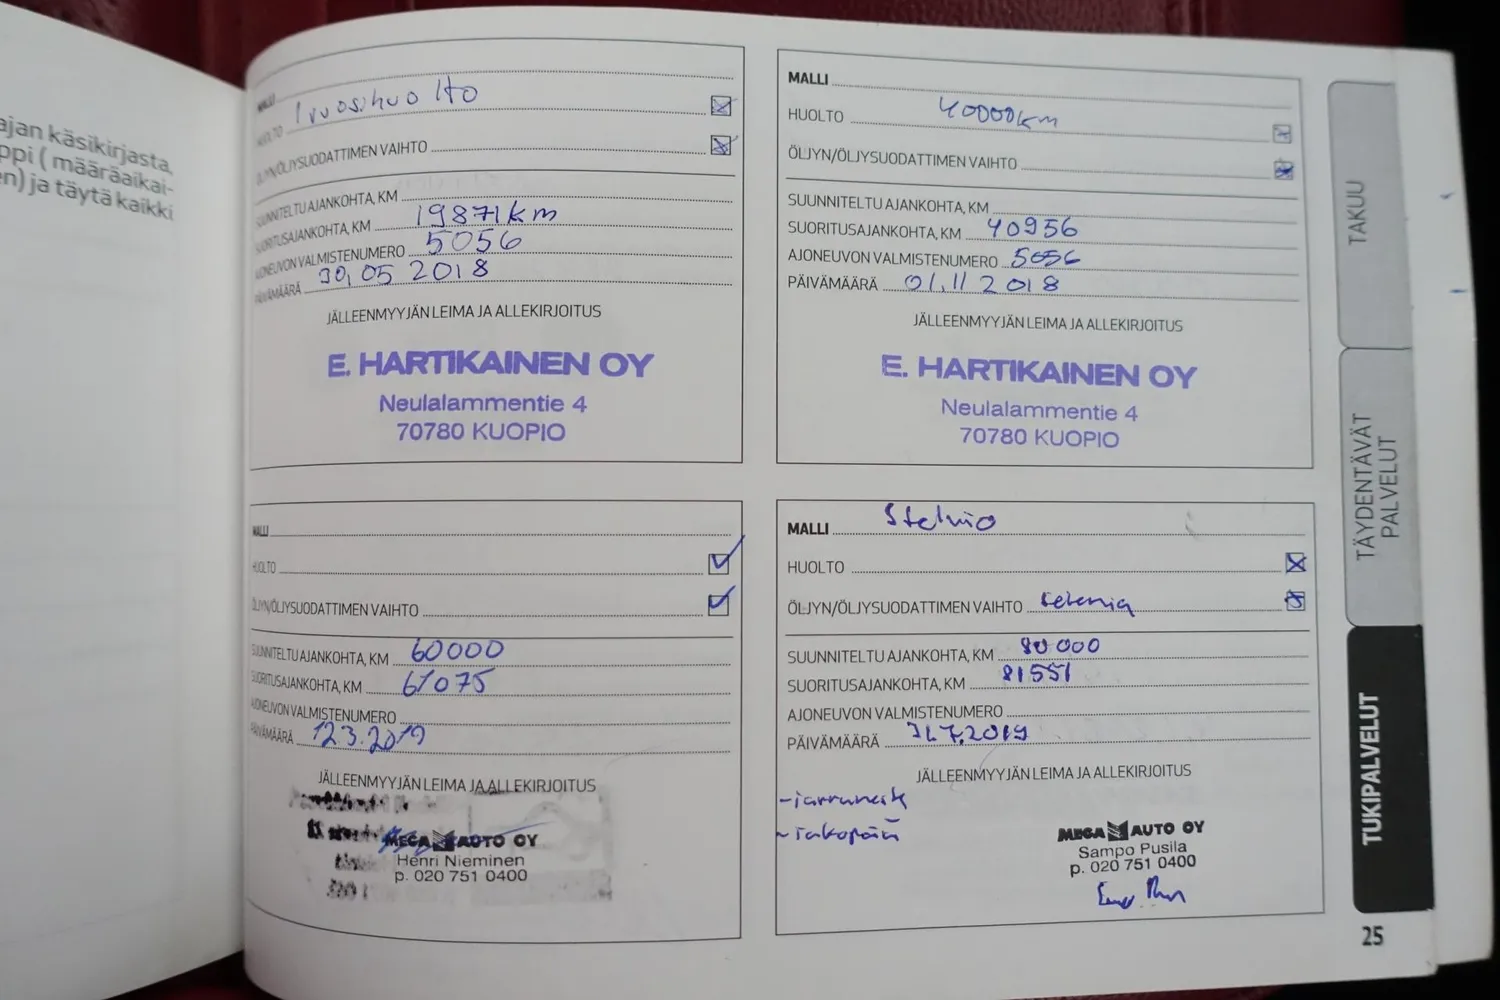 ajan käsikirjasta,
ppi ( määräaikai-
en) ja täytä kaikki
MALLI
HUOLTO 1 vuosihuolto
ÖLJYN/ÖLJYSUODATTIMEN VAIHTO
SUUNNITELTU AJANKOHTA, KM
SUORITUSAJANKOHTA, KM 19871km
AJONEUVON VALMISTENUMERO 5056
PÄIVÄMÄÄRÄ 30.05 2018
JÄLLEENMYYJÄN LEIMA JA ALLEKIRJOITUS
E. HARTIKAINEN OY
Neulalammentie 4
70780 KUOPIO
MALLI
HUOLTO 40000km
ÖLJYN/ÖLJYSUODATTIMEN VAIHTO
SUUNNITELTU AJANKOHTA, KM
SUORITUSAJANKOHTA, KM 40956
AJONEUVON VALMISTENUMERO 5056
PÄIVÄMÄÄRÄ 01.11 2018
JÄLLEENMYYJÄN LEIMA JA ALLEKIRJOITUS
E. HARTIKAINEN OY
Neulalammentie 4
70780 KUOPIO
MALLI
HUOLTO
ÖLJYN/ÖLJYSUODATTIMEN VAIHTO
SUUNNITELTU AJANKOHTA, KM 60000
SUORITUSAJANKOHTA, KM 61075
AJONEUVON VALMISTENUMERO
PÄIVÄMÄÄRÄ 12.3.2019
JÄLLEENMYYJÄN LEIMA JA ALLEKIRJOITUS
MEGA AUTO OY
Henri Nieminen
p. 020 751 0400
MALLI Stelvio
HUOLTO
ÖLJYN/ÖLJYSUODATTIMEN VAIHTO Selenia
SUUNNITELTU AJANKOHTA, KM 80 000
SUORITUSAJANKOHTA, KM 81551
AJONEUVON VALMISTENUMERO
PÄIVÄMÄÄRÄ 31.7.2019
JÄLLEENMYYJÄN LEIMA JA ALLEKIRJOITUS
-jarruneste
MEGA AUTO OY
Sampo Pusila
p. 020 751 0400
TAKUU
TÄYDENTÄVÄT
PALVELUT
TUKIPALVELUT
25